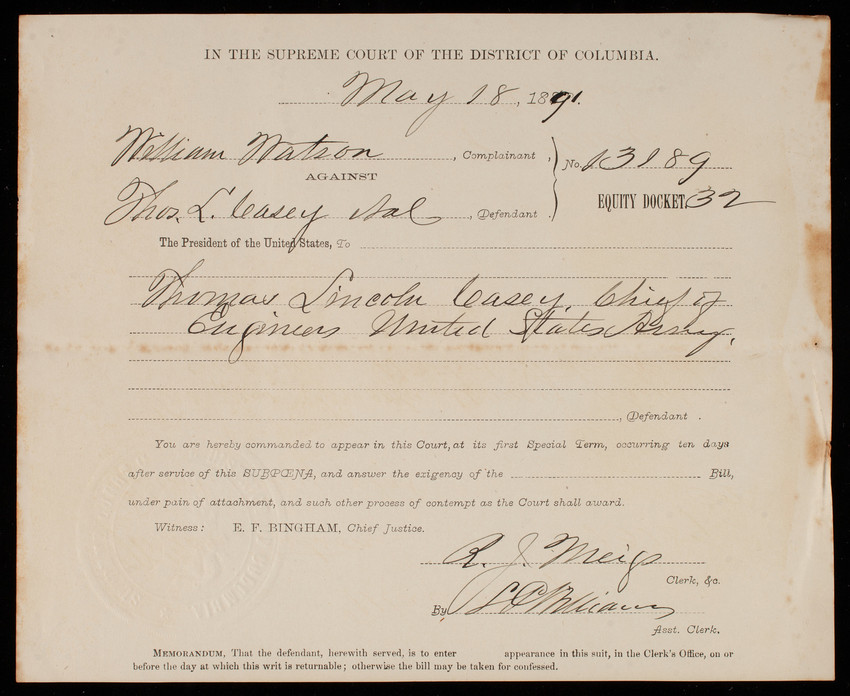 IN THE SUPREME COURT OF THE DISTRICT OF COLUMBIA.
May 18, 1891.
William Watson, Complainant, No. 13189
AGAINST
EQUITY DOCKET, 32
Thos. L. Casey et al, Defendant.
The President of the United States, To
Thomas Lincoln Casey, Chief of
Engineers United States Army,
, Defendant.
You are hereby commanded to appear in this Court, at its first Special Term, occurring ten days
after service of this SUBPŒNA, and answer the exigency of the Bill,
under pain of attachment, and such other process of contempt as the Court shall award.
Witness: E. F. BINGHAM, Chief Justice.
R. J. Meigs
Clerk, &c.
By L. P. Williams
Asst. Clerk.
MEMORANDUM, That the defendant, herewith served, is to enter appearance in this suit, in the Clerk's Office, on or
before the day at which this writ is returnable; otherwise the bill may be taken for confessed.